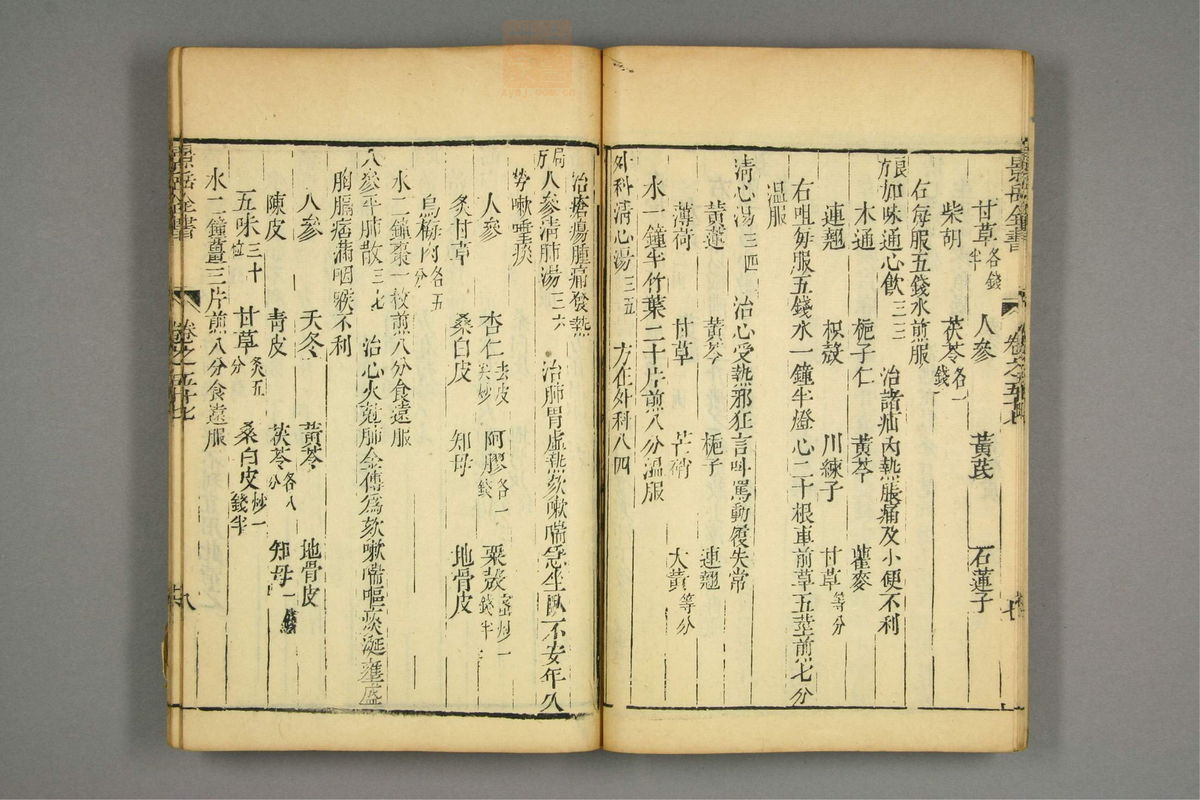 景岳全書
卷之五十七
甘草各錢半 人參 黃芪 石蓮子
柴胡 茯苓各一錢
右每服五錢水煎服
良方加味通心飲三三 治諸疝內熱脹痛及小便不利
木通 梔子仁 黃芩 瞿麥
連翹 枳殼 川練子 甘草等分
右㕮每服五錢水一鐘半燈心二十根車前草五莖煎七分
溫服
清心湯三四 治心受熱邪狂言呌罵動履失常
黃蓮 黃芩 梔子 連翹
薄荷 甘草 芒硝 大黃等分
水一鐘半竹葉二十片煎八分溫服
外科清心湯三五 方在外科八四
治瘡瘍腫痛發熱
局方人參清肺湯三六 治肺胃虛熱欬嗽喘急坐臥不安年久
勞嗽唾痰
人參 杏仁去皮尖炒 阿膠各一錢 粟殼蜜炒一錢半
炙甘草 桑白皮 知母 地骨皮
烏梅肉各五分
水二鐘棗一枚煎八分食遠服
人參平肺散三七 治心火剋肺金傳爲欬嗽喘嘔痰涎壅盛
胸膈痞滿咽喉不利
人參 天冬 黃芩 地骨皮
陳皮 青皮 茯苓各八分 知母一錢
五味三十粒 甘草炙五分 桑白皮炒一錢半
水二鐘薑三片煎八分食遠服
景岳全書
卷之五十七